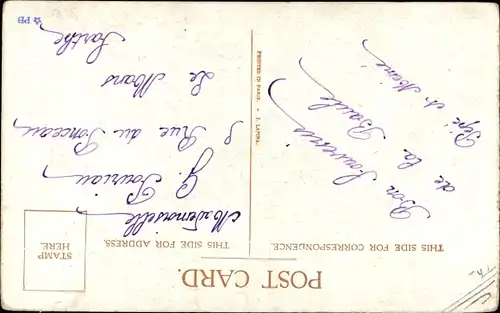 POST CARD.
THIS SIDE FOR CORRESPONDENCE.
THIS SIDE FOR ADDRESS.
STAMP
HERE.
Bon Souvenir
de la Baule
Mademoiselle
G.
Rue du Ponceau,
Le Mans
Sarthe
PRINTED IN PARIS.
PB